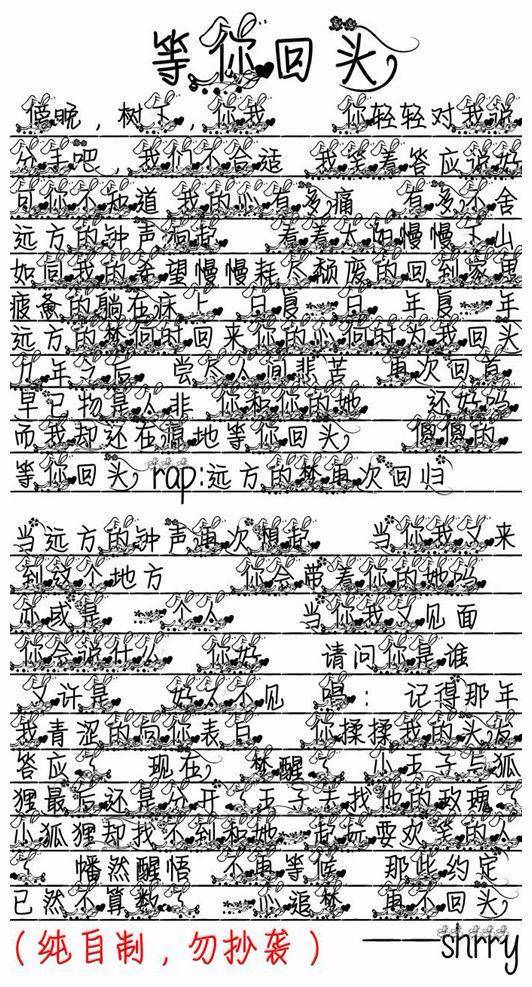 等你回头
傍晚，树下，你我 你轻轻对我说
分手吧，我们不合适 我笑着答应说好
可你不知道 我的心有多痛 有多不舍
远方的钟声响起 看着太阳慢慢下山
如同我的希望慢慢耗尽颓废的回到家里
疲惫的躺在床上 日复一日 年复一年
远方的梦何时回来你的心何时为我回头
几年之后 尝尽人间悲苦 再次回首
早已物是人非 你和你的她 还好吗
而我却还在原地等你回头， 傻傻的
等你回头，rap:远方的梦再次回归
当远方的钟声再次想起 当你我又来
到这个地方 你会带着你的她吗
亦或是 一个人 当你我又见面
你会说什么 你好 请问你是谁
又许是 好久不见 唱： 记得那年
我青涩的向你表白 你揉揉我的头发
答应了 现在， 梦醒了 小王子与狐
狸最后还是分开了王子去找他的玫瑰了
小狐狸却找不到和她一起玩耍欢笑的人
了 幡然醒悟 不再等候 那些约定
已然不算数了 一心追梦 再不回头，
（纯自制，勿抄袭） ——shrry